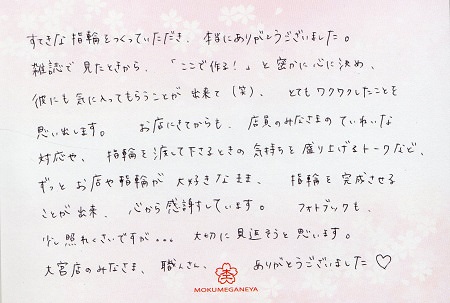 すてきな指輪をつくっていただき、本当にありがとうございました。
雑誌で見たときから、「ここで作る！」と密かに心に決め、
彼にも気に入ってもらうことが出来て（笑）、とてもワクワクしたことを
思い出します。 お店にきてからも、店員のみなさまのていねいな
対応や、指輪を渡して下さるときの気持ちを盛り上げるトークなど、
ずっとお店や指輪が大好きなまま、指輪を完成させる
ことが出来、心から感謝しています。 フォトブックも、
少し照れくさいですが... 大切に見返そうと思います。
大宮店のみなさま、職人さん、ありがとうございました♡
MOKUMEGANEYA